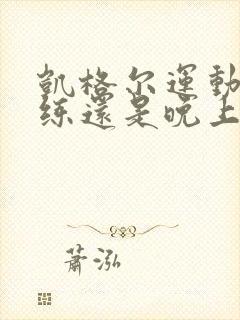 凯格尔運動
练還是晚上
蕭泓